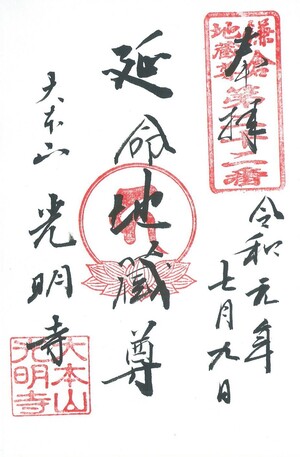 奉拝
鎌倉
地蔵尊
第二十二番
令和元年
七月九日
延命地蔵尊
大本山
光明寺
大本山
光明寺